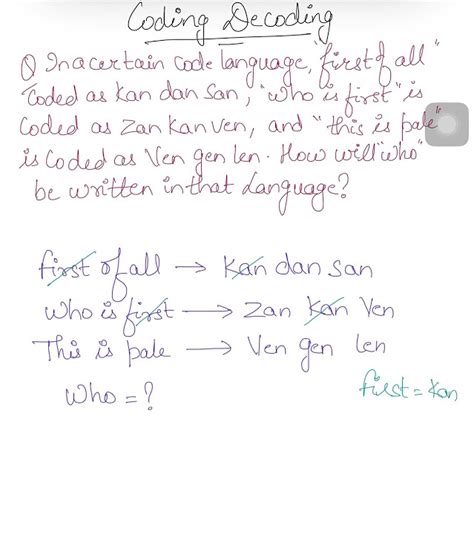 Coding Decoding
Q In a certain code language, "first of all"
Coded as Kan dan San, "who is first" is
Coded as Zan Kan Ven, and "this is pale"
is Coded as Ven gen len. How will "who"
be written in that Language?
first of all → Kan dan san
Who is first → Zan Kan Ven
This is pale → Ven gen len
Who = ?
first = Kan